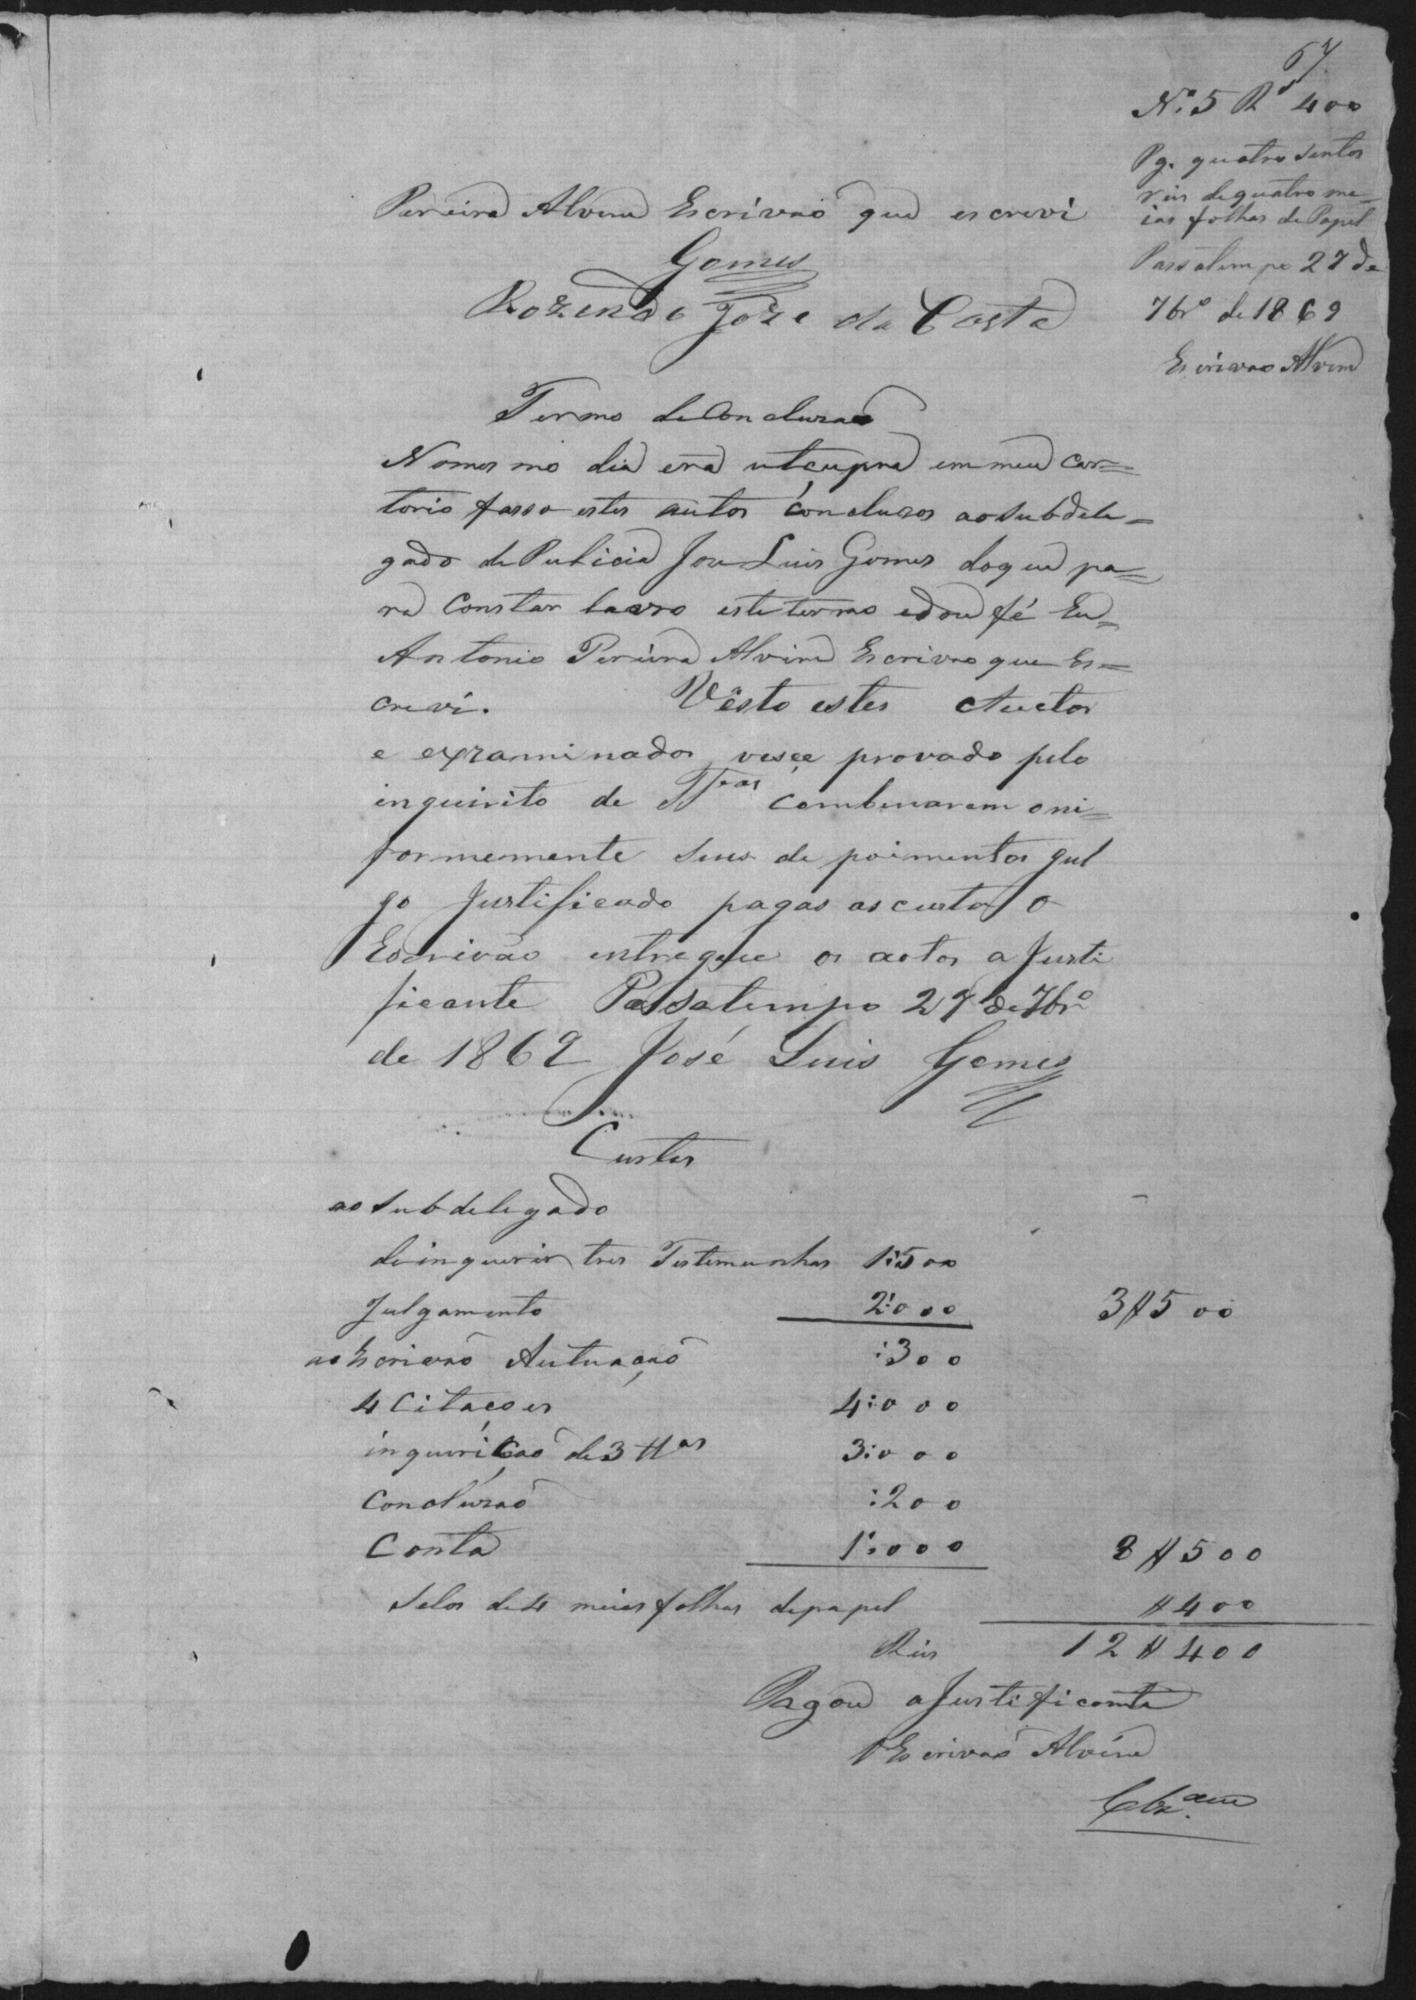 67
N.º 5 Rs 400
Pg. quatro sentos
reis de quatro me-
ias folhas de Papel
Passatempo 27 de
7br.º de 1869
Escrivao Alvim
Pereira Alvim Escrivaõ que escrevi
Gomes
Rozendo Joze da Costa
Termo de Concluzaõ
No mesmo dia era utçupra em meu car=
torio fasso estes autos concluzos ao Subdele=
gado de Pulicia Joze Luis Gomes do que pa=
ra Constar lavro este termo e dou fé Eu=
Antonio Pereira Alvim Escrivao que Es=
crevi. Visto estes Auctos
e exzaminados veçe provado pelo
inquirito de Ttas combinarem oni=
formemente seus de poimentos gul
go Justificado pagas as custas o
Escrivão entregue os autos a Justi
ficante Passatempo 27 de 7br.º
de 1869 José Luis Gomes
Custas
ao Subdelegado
de inquerir tres Testemunhas 1:500
Julgamento 2:000 3$500
ao Escrivaõ Autuaçaõ :300
4 Citaçoes 4:000
inquiriçaõ de 3 ttas 3:000
Concluzaõ :200
Conta 1:000 8$500
Selos de 4 meias folhas de papel $400
Reis 12$400
Pagou a Justificante
Escrivaõ Alvim